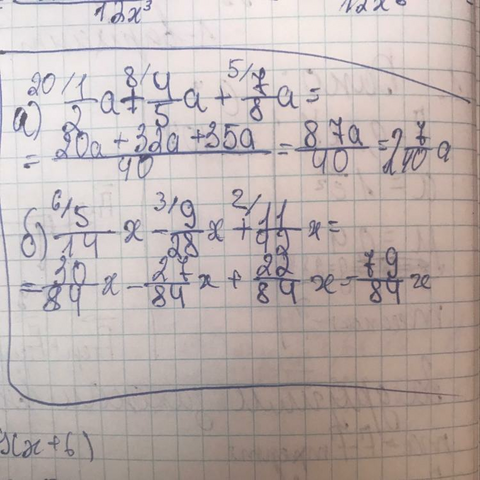 12x³ 12x
a) 20/ 1/2 a + 8/ 4/5 a + 5/ 7/8 a =
= 20a + 32a + 35a / 40 = 87a / 40 = 2 7/40 a
б) 6/ 5/14 x - 3/ 9/28 x + 2/ 11/42 x =
= 30/84 x - 27/84 x + 22/84 x - 79/84 x
(x+6)